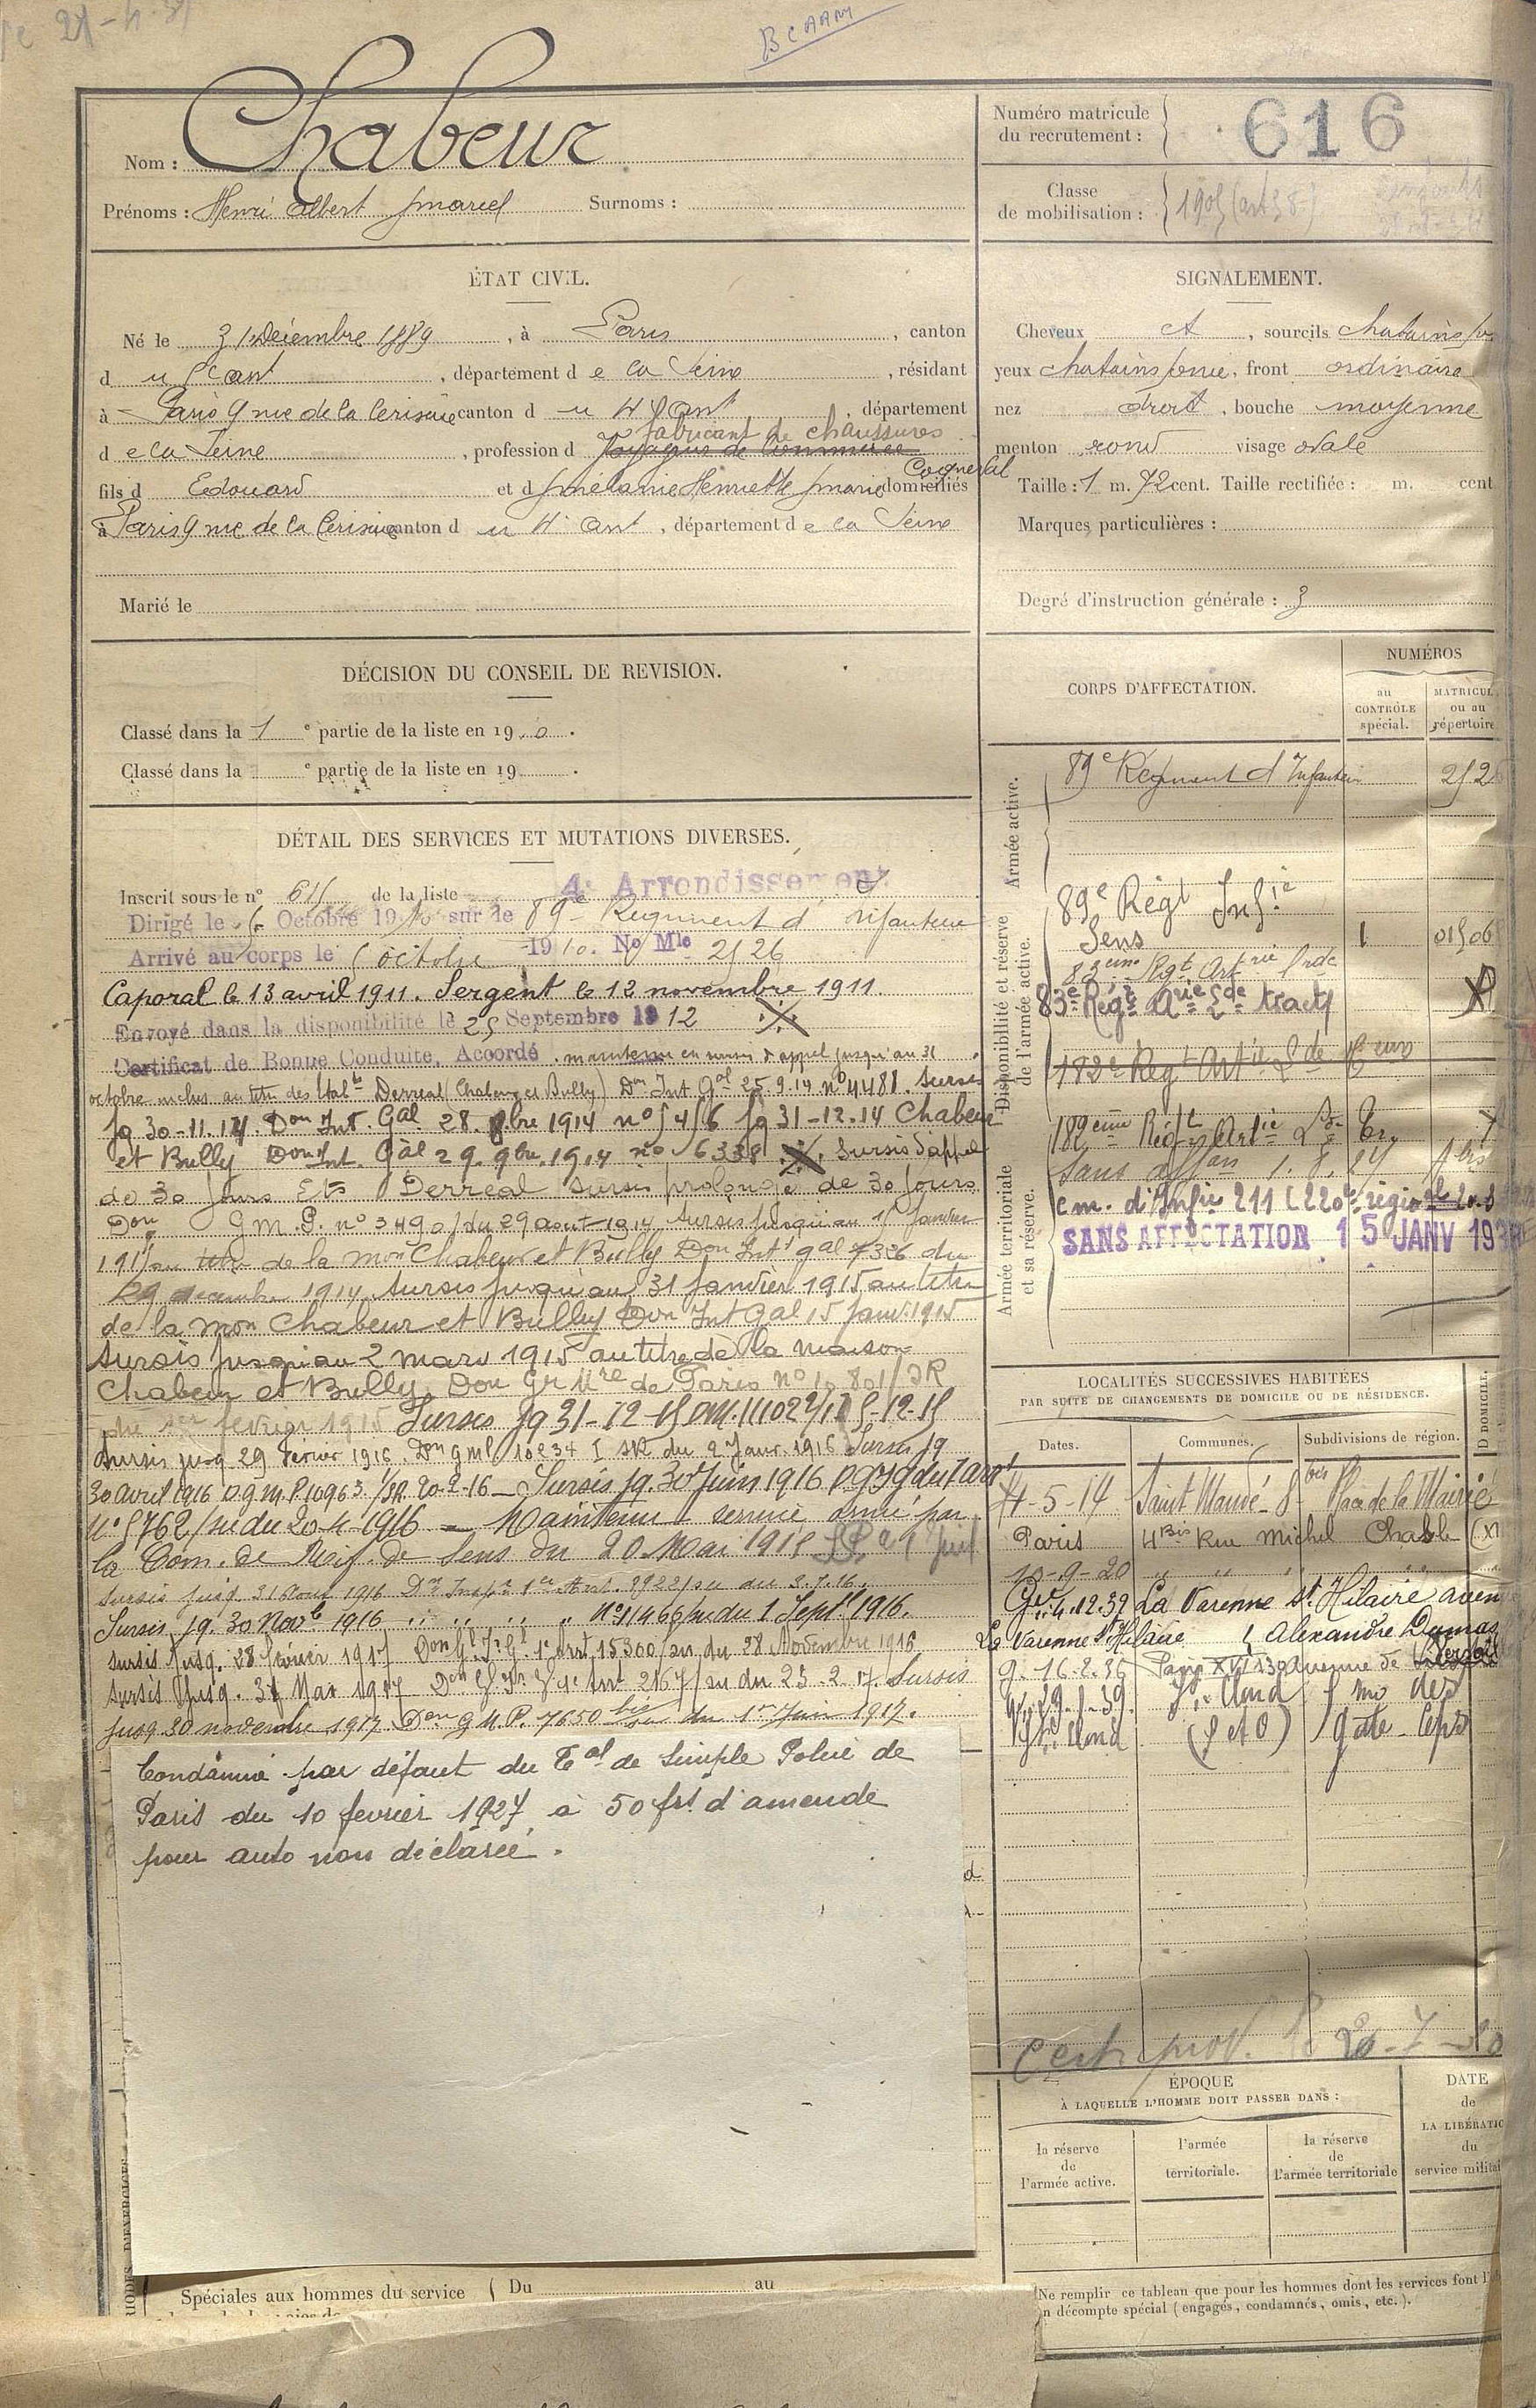 BCAAM
Nom : Chabeur
Prénoms : Henri Albert Marcel Surnoms :
Numéro matricule
du recrutement : 616
Classe
de mobilisation : 1905 (art 58)
ÉTAT CIVIL.
Né le 31 Décembre 1889, à Paris, canton
du 5e ant, département de la Seine, résidant
à Paris 9 rue de la Cerisaie canton du 4e ant, département
fabricant de chaussures
de la Seine, profession d Voyageur de Commerce
Cogneval
fils d Edouard et d Mélanie Henriette Marie domiciliés
à Paris 9 rue de la Cerisaie canton du 4e ant, département de la Seine
Marié le
SIGNALEMENT.
Cheveux et, sourcils chatains
yeux chatains, front ordinaire
nez droit, bouche moyenne
menton rond visage ovale
Taille : 1 m. 72 cent. Taille rectifiée : m. cent
Marques particulières :
Degré d'instruction générale : 3
DÉCISION DU CONSEIL DE REVISION.
Classé dans la 1e partie de la liste en 19 .0 .
Classé dans la e partie de la liste en 19 .
DÉTAIL DES SERVICES ET MUTATIONS DIVERSES.
Inscrit sous le n° 615 de la liste 4e Arrondissement
Dirigé le 5 Octobre 1910 sur le 89e Régiment d'infanterie
Arrivé au corps le 5 octobre 1910. No Mle 2526
Caporal le 13 avril 1911. Sergent le 12 novembre 1911.
Envoyé dans la disponibilité le 25 Septembre 1912
Certificat de Bonne Conduite, Accordé. maintenu en sursis d'appel jusqu'au 31
octobre inclus au titre des Etabts Derreal (Chabeur et Bully) Don Int Gal 25.9.14 n° 4481. Sursis
jq 30-11.14. Don Int. Gal 28. 8bre 1914 n° 5456 jq 31-12.14 Chabeur
et Bully Don Int. Gal 29. 9bre. 1914 n° 6338. Sursis d'appel
de 30 jours Ets Derreal sursis prolongé de 30 jours
Don G.M.P. n° 3490 du 29 août 1914. Sursis jusqu'au 15 Janvier
1915 au titre de la mon Chabeur et Bully Don Intt gal 7326 du
29 décembre 1914. Sursis jusqu'au 31 Janvier 1915 au titre
de la mon Chabeur et Bully Don Int Gal 15 janv. 1915
Sursis jusqu'au 2 mars 1915 au titre de la maison
Chabeur et Bully. Don Gr Mre de Paris n° 10801/2R
du 1er février 1915 Sursis jq 31-12-15
Sursis jusq 29 Février 1916. Don gmP 10234 I SR du 2 Janv. 1916 Sursis jq
30 avril 1916 D.G.M.P 10963 I/SR 20-2-16 - Sursis jq. 30 Juin 1916
N° 5762/su du 20-4-1916 - Maintenu service armé par
la Com. de Réf. de Sens du 20 Mai 1915
Sursis jusq. 31 Août 1916 8922/su du 3.7.16.
Sursis jq. 30 Novbe 1916 " " " " N° 11466/su du 1 Septe 1916.
Sursis Jusq. 28 Février 1917 Don Gl In Gl 1e Arrt 15300/su du 28 Novembre 1916
Sursis Jusq. 31 Mai 1917 Don Gl In Gl 1e Arrt 2167/su du 23-2-17. Sursis
jusq 30 novembre 1917 Don G.M.P. 7650 bis/su du 1er Juin 1917.
Condamné par défaut du Tal de Simple Police de
Paris du 10 février 1927 à 50 frs d'amende
pour auto non déclarée.
Spéciales aux hommes du service Du au
CORPS D'AFFECTATION.
NUMÉROS
au
CONTRÔLE
spécial.
MATRICUL
ou au
répertoire
Armée active.
89e Régiment d'Infanterie 252
Disponibilité et réserve
de l'armée active.
89e Régt Infie
Sens 1 01506
83ème Régt Artrie Lrde
83e Régt Arie Lde tracts
182e Regt Artie Lde
182ème Régt Artie Lde Tr.
Armée territoriale
et sa réserve.
Sans affon 1.8.27
cm. d'Infie 211 (220e région
SANS AFFECTATION 15 JANV 193
LOCALITÉS SUCCESSIVES HABITÉES
PAR SUITE DE CHANGEMENTS DE DOMICILE OU DE RÉSIDENCE.
Dates. Communes. Subdivisions de région. D DOMICILE.
4-5-14 Saint Mandé 8 bis Place de la Mairie
Paris 4 Bis Rue Michel Chasles (XI
13-9-20 " " " "
4.12.32 La Varenne St Hilaire aven
La Varenne St Hilaire Alexandre Dumas
g. 16-2-36 Paris XVI 130 avenue de Versailles
19-1-39. St Cloud
St Cloud (S et O)
Certi prov. le 20-7-
ÉPOQUE
À LAQUELLE L'HOMME DOIT PASSER DANS :
la réserve
de
l'armée active.
l'armée
territoriale.
la réserve
de
l'armée territoriale
DATE
de
LA LIBÉRATIO
du
service militai
Ne remplir ce tableau que pour les hommes dont les services font l'
n décompte spécial (engagés, condamnés, omis, etc.).